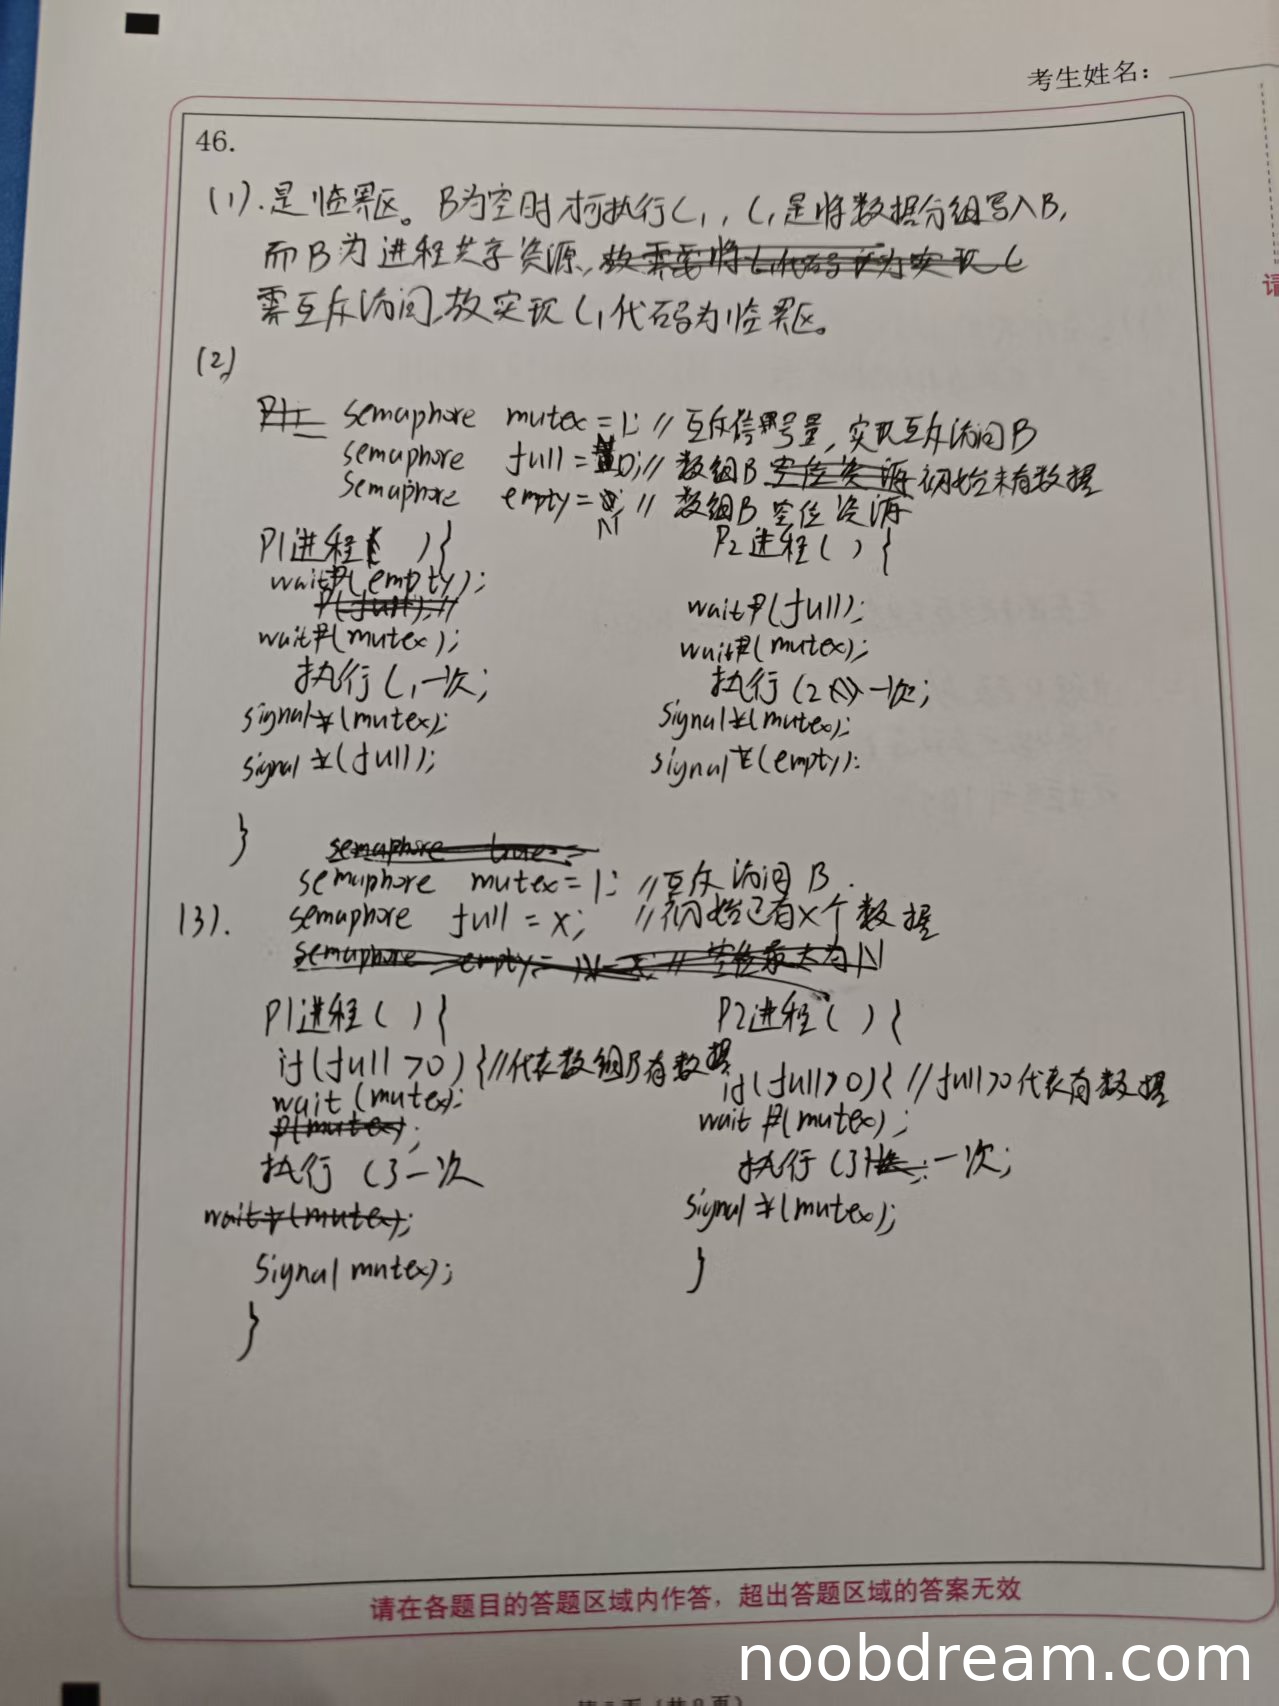 考生姓名：
46.
(1).是临界区。B为空时才可执行C1，C1是将数据分组写入B,
而B为进程共享资源,
需互斥访问,故实现C1代码为临界区。
(2)
semaphore mutex=1; // 互斥信号量，实现互斥访问B
semaphore full=0; // 数组B 初始未有数据
semaphore empty=N; // 数组B 空位资源
P1进程( ){
wait(empty);
wait(mutex);
执行C1一次;
signal(mutex);
signal(full);
}
P2进程( ){
wait(full);
wait(mutex);
执行C2一次;
signal(mutex);
signal(empty):
semaphore mutex=1; //互斥访问B.
(3). semaphore full=x; //初始已有x个数据
P1进程( ){
if(full>0){//代表数组B有数据
wait(mutex);
执行C3一次
signal mutex);
}
P2进程( ){
if(full>0){ //full>0代表有数据
wait(mutex);
执行C3一次;
signal(mutex);
}
请在各题目的答题区域内作答，超出答题区域的答案无效
noobdream.com